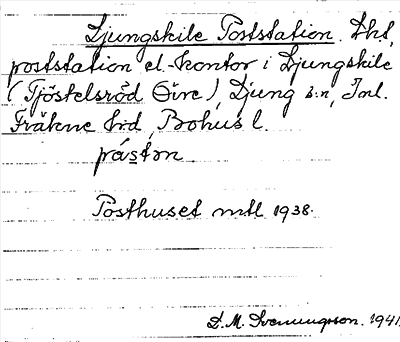 Ljungskile Poststation. Lht,
poststation el. -kontor i Ljungskile
(Tjöstelsröd Övre), Ljung s:n, Inl.
Fräkne hrd, Bohus l.
påstn
Posthuset mtl 1938.
D. M. Svenungsson. 1941